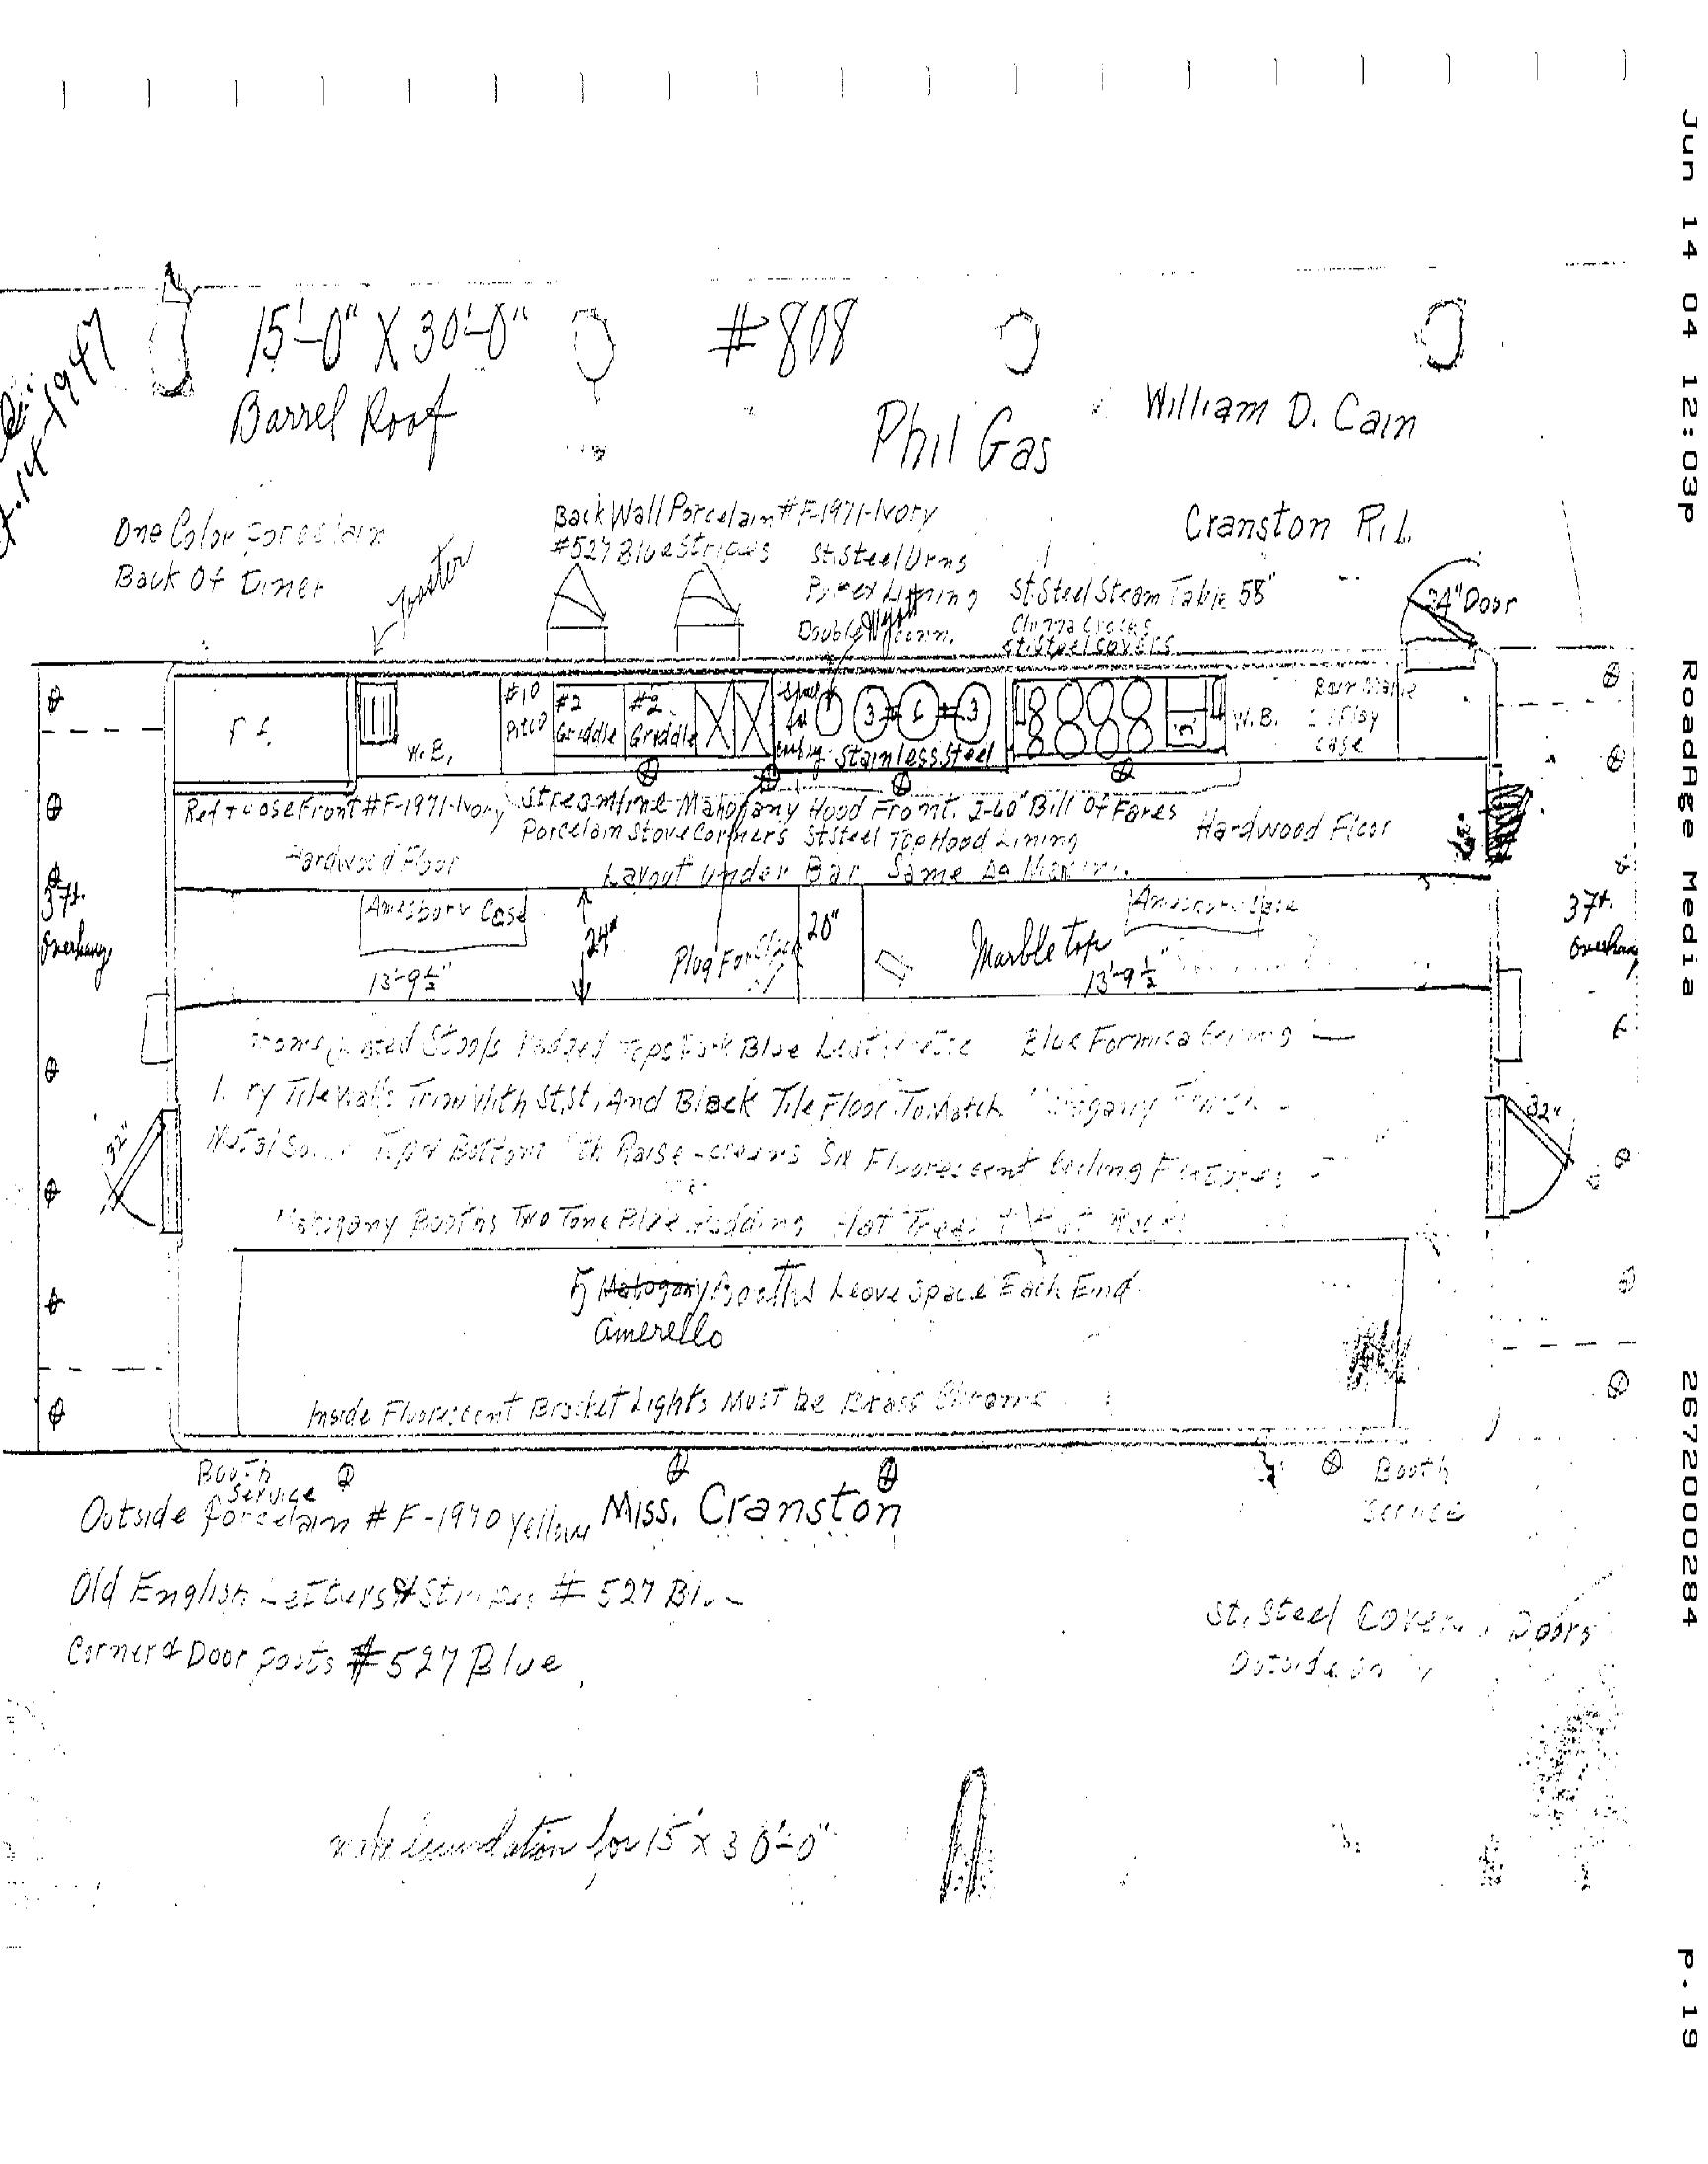 15'-0" X 30'-0"
#808
Barrel Roof
Phil Gas
William D. Cain
Cranston R.I.
14-1947
One Color Porcelain
Back Of Diner
Toaster
Back Wall Porcelain #F-1971-Ivory
#527 Blue Stripes
St. Steel Urns
Pyrex Lining
Double
St. Steel Steam Table 58"
China Crocks
St. Steel Covers
24" Door
W.B.
#10
Pitco
#2
Griddle
#2
Griddle
Space
for
3 6 3
Stainless Steel
W.B.
Display
Case
Ref + Case Front #F-1971-Ivory
Streamline Mahogany Hood Front. 2-60" Bill Of Fares
Porcelain Stove Corners St Steel Top Hood Lining
Hardwood Floor
Hardwood Floor
Layout Under Bar Same As
3 ft.
Overhang
3 ft.
Overhang
Amesbury Case
13'-9½"
24"
Plug For
20"
Marble top
Amesbury Case
13'-9½"
Stools Padded Tops Dark Blue Leatherette
Blue Formica Ceiling
Tile Walls Trim With St. St. And Black Tile Floor To Match Mahogany Finish
Top & Bottom Raise Screens Six Fluorescent Ceiling Fixtures
Mahogany Booths Two Tone Blue Padding Hat Trees
32"
32"
5 Mahogany Booths Leave Space Each End
Amerello
Inside Fluorescent Bracket Lights Must be Brass Chrome
Booth
Service
Booth
Service
Outside Porcelain #F-1970 Yellow
Miss. Cranston
Old English Letters & Stripes #527 Blue
Corner & Door Posts #527 Blue
St. Steel Covered Doors
Outside
foundation for 15' x 30'-0"
Jun 14 04 12:03p
RoadAge Media
2672000284
P.19